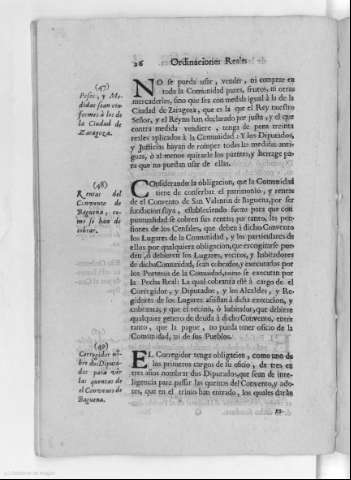 26 Ordinaciones Reales
(47)
Pesos, y Me-
didas sean con-
formes à los de
la Ciudad de
Zaragoza.
NO se pueda usar, vender, ni comprar en
toda la Comunidad panes, frutos, ni otras
mercaderias, sino que sea con medida igual à la de la
Ciudad de Zaragoza, que es la que el Rey nuestro
Señor, y el Reyno han declarado por justa, y el que
contra medida vendiere, tenga de pena treinta
reales aplicados à la Comunidad: Y los Diputados,
y Justicias hayan de romper todas las medidas antiguas,
ò al menos quitarle los puntos, y herrage para
que no puedan usar de ellas.
(48)
Rentas del
Convento de
Baguena, co-
mo se han de
cobrar.
COnsiderando la obligacion, que la Comunidad
tiene de conservar el patrimonio, y rentas
del Convento de San Valentin de Baguena, por ser
fundacion suya, estableciendo fuero para que con
puntualidad se cobren sus rentas; por tanto, las pensio-
nes de los Censales, que deben à dicho Convento
los Lugares de la Comunidad, y los particulares de
ellos por qualquiera obligacion, que excogitarse pue-
den, ò debieren los Lugares, vecinos, y habitadores
de dicha Comunidad, sean cobrados, y executados por
los Porteros de la Comunidad, como se executan por
la Pecha Real: La qual cobranza estè à cargo de el
Corregidor, y Diputados, y los Alcaldes, y Re-
gidores de los Lugares assistan à dicha execucion, y
cobranza; y que el vecino, ò habitador, que debiere
qualquiere genero de deuda à dicho Convento, entre
tanto, que la pague, no pueda tener oficio de la
Comunidad, ni de sus Pueblos.
(49)
Corregidor nõ-
bre dos Diputa-
dos para vèr
las quentas de
el Convento de
Baguena.
EL Corregidor tenga obligacion, como uno de
los primeros cargos de su oficio, de tres en
tres años nombrar dos Diputados, que sean de inte-
ligencia para passar las quentas del Convento, y ado-
tes, que en el trinio han entrado, los quales daràn